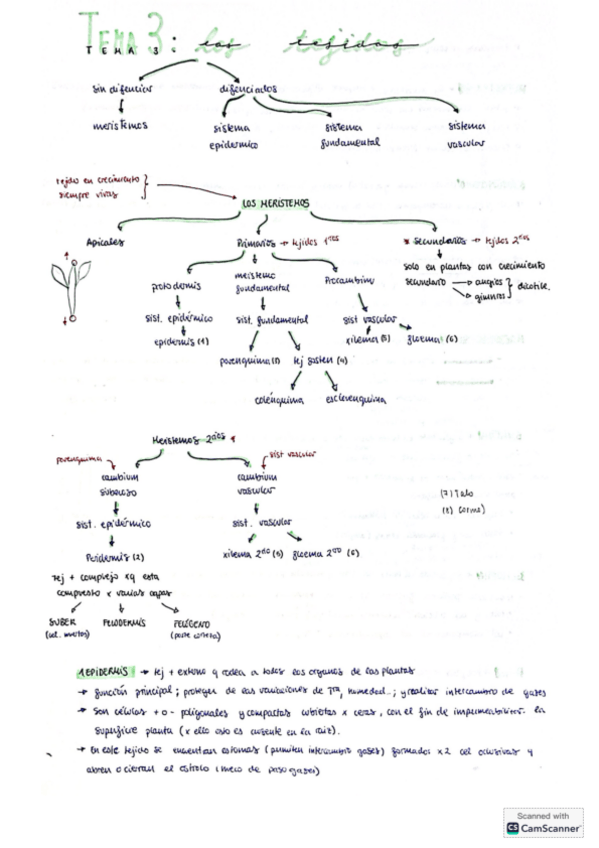 TEMA 3: los tejidos
TEMA 3:
sin difenciar
difenciados
meristemos
sistema epidermico
sistema fundamental
sistema vascular
tejido en crecimiento
siempre vivas
LOS MERISTEMOS
Apicales
Primarios → tejidos 1rios
* Secundarios → tejidos 2rios
solo en plantas con crecimiento
secundario → angios
→ gimnos } dicotile.
protodermis
meristemo fundamental
Procambium
sist. epidérmico
sist. fundamental
sist vascular
epidermis (1)
parenquima (3)
tej sosten (4)
xilema (5)
floema (6)
colénquima
esclerenquima
Meristemos 2rios *
parenquima
sist vascular
cambium suberoso
cambium vascular
(7) Talo
(8) cormo)
sist. epidérmico
sist. vascular
Peridermis (2)
xilema 2rio (5)
floema 2rio (6)
Tej + complejo xq esta
compuesto x varias capas
SUBER
(cel. muertas)
FELODERMIS
FELÓGENO
(parte corteza)
1 EPIDERMIS → tej + externo q rodea a todos los organos de las plantas
→ función principal; proteger de las variaciones de Tra, humedad...; y realizar intercambio de gases
→ Son células + o - poligonales y compactas cubiertas x ceras, con el fin de impermeabilizar la
superficie planta (x ello esto es ausente en la raiz).
→ En este tejido se encuentan estomas (permiten intercambio gases) formados x2 cel oclusivas q
abren o cierran el ostiolo (hueco de paso gases)
Scanned with
CS CamScanner